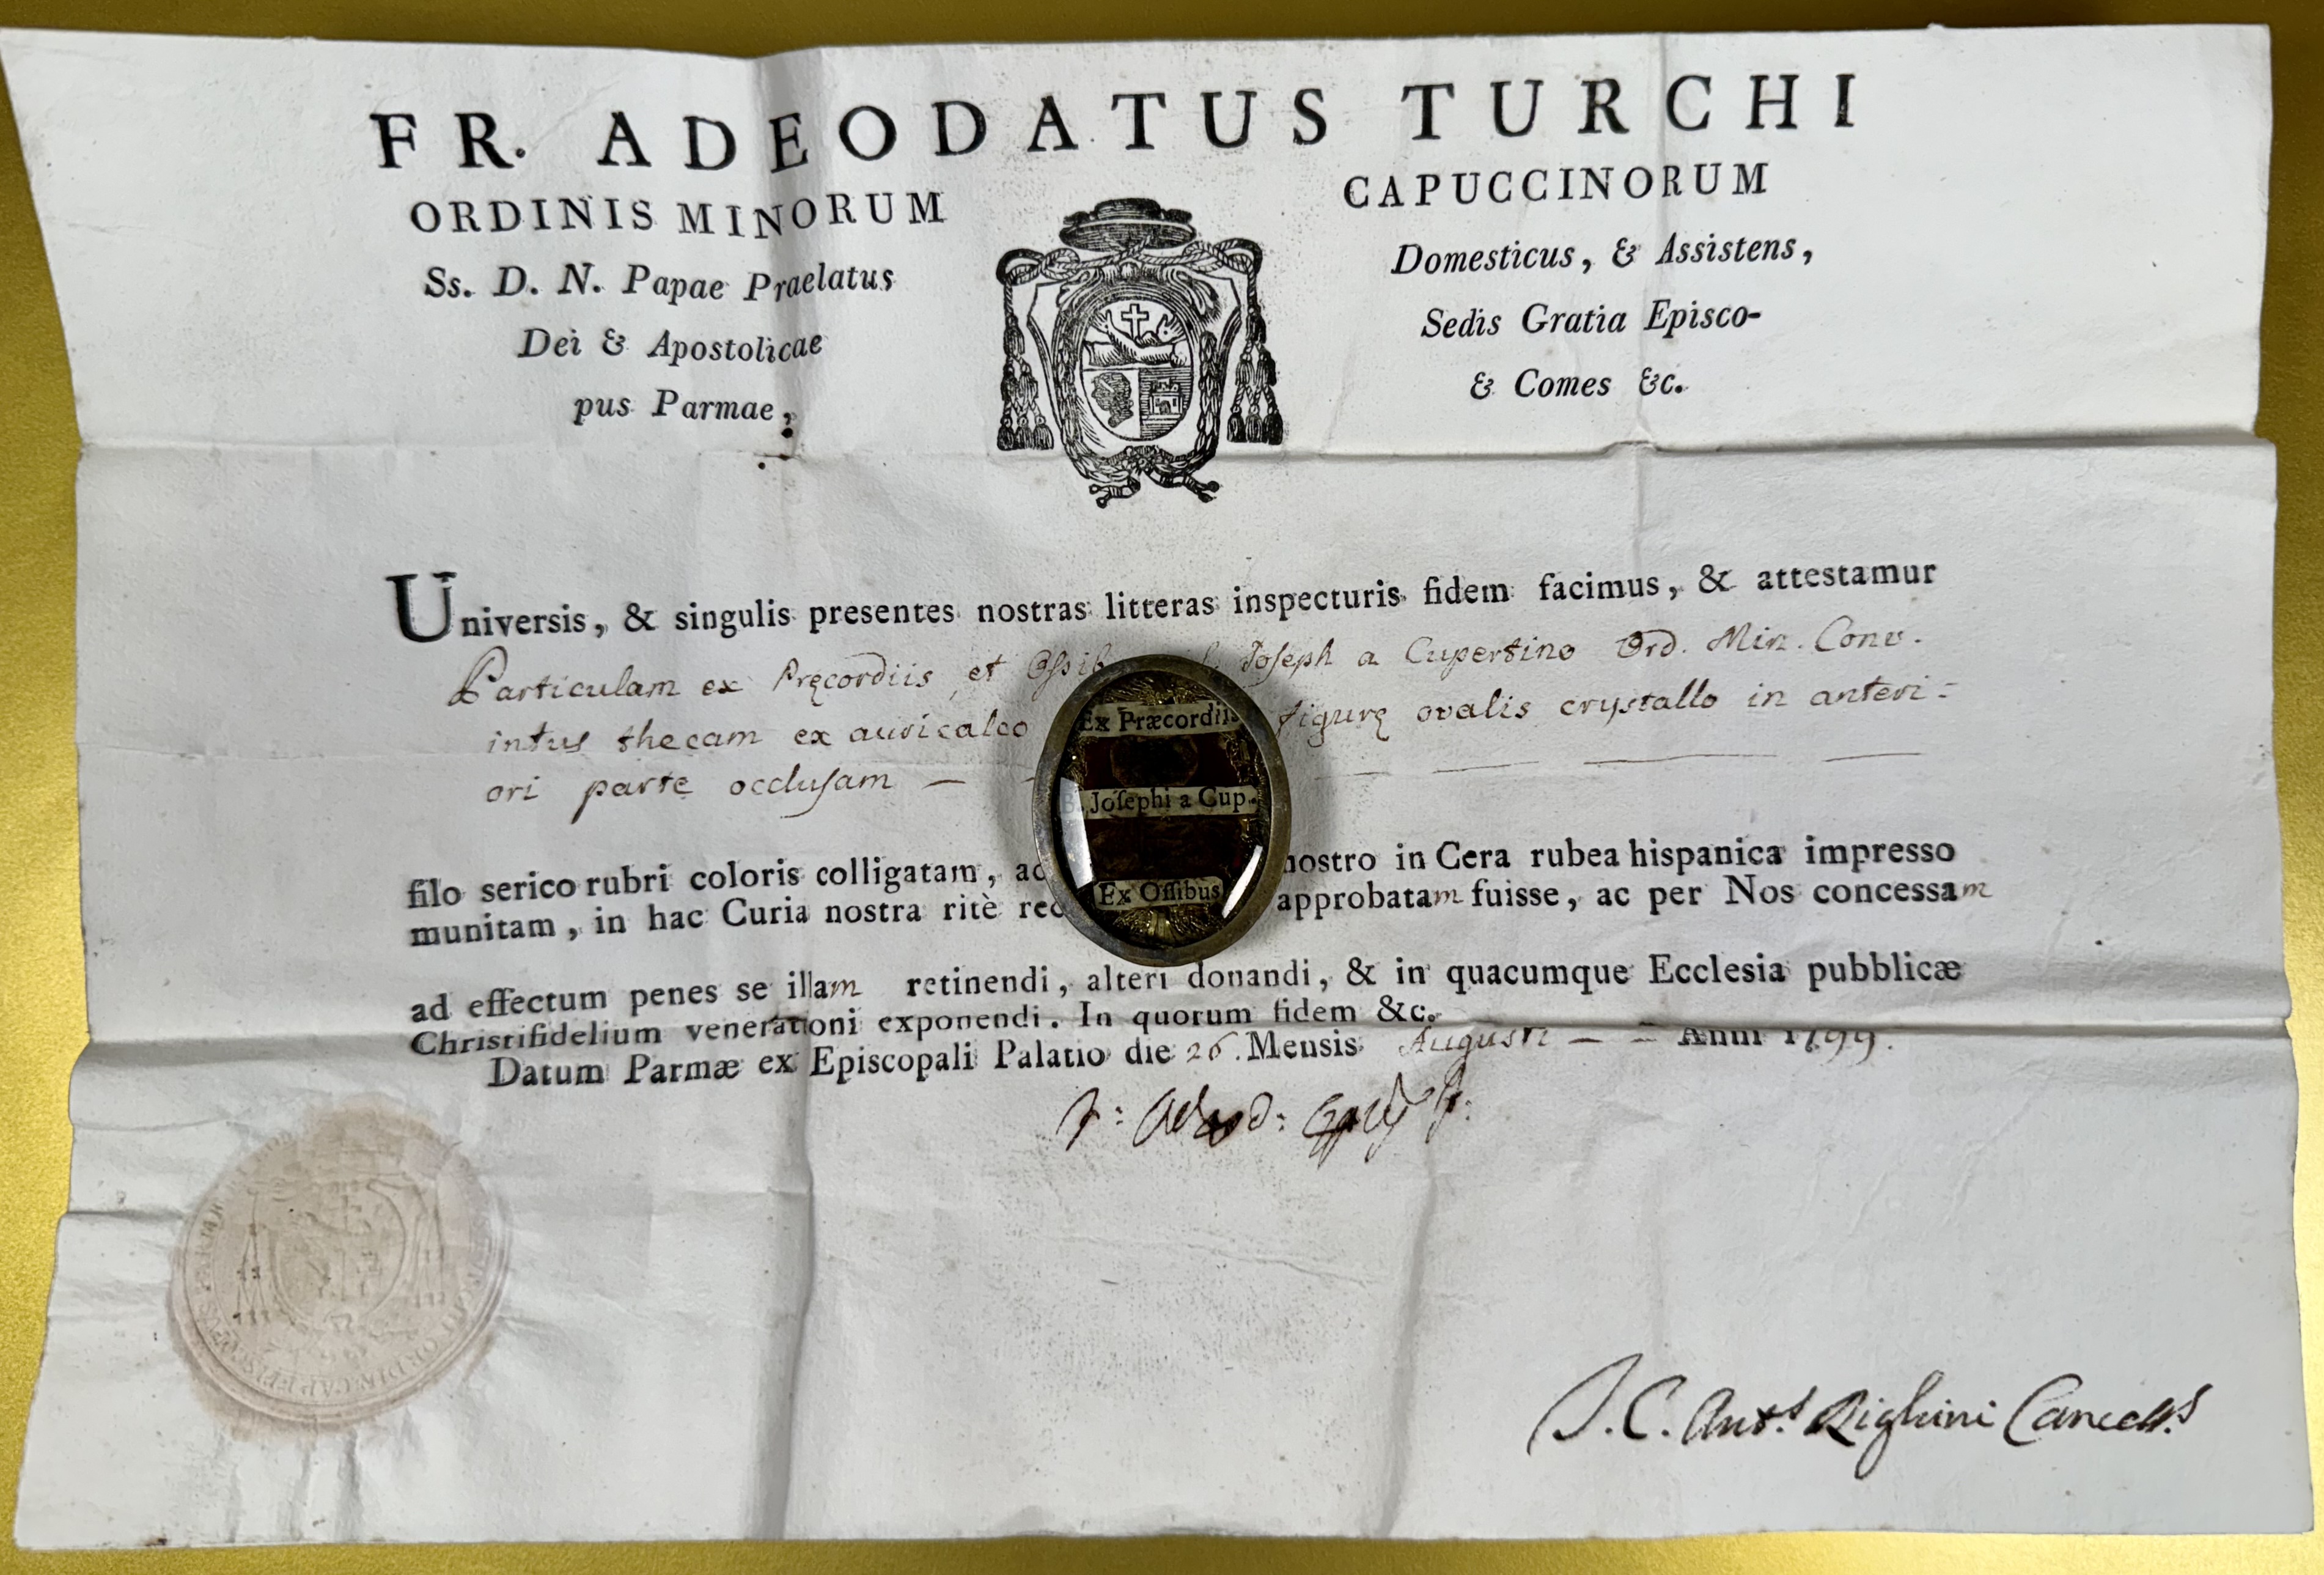 FR. ADEODATUS TURCHI
ORDINIS MINORUM CAPUCCINORUM
Ss. D. N. Papae Praelatus Domesticus, & Assistens,
Dei & Apostolicae Sedis Gratia Episco-
pus Parmae, & Comes &c.
Universis, & singulis presentes nostras litteras inspecturis fidem facimus, & attestamur
Particulam ex Pręcordiis, et Joseph a Cupertino Ord. Min. Conv.
intus thecam ex auricalco figurę ovalis crystallo in anteri=
ori parte occlusam —
Ex Præcordiis
B. Josephi a Cup.
Ex Ossibus
filo serico rubri coloris colligatam, nostro in Cera rubea hispanica impresso
munitam, in hac Curia nostra ritè approbatam fuisse, ac per Nos concessam
ad effectum penes se illam retinendi, alteri donandi, & in quacumque Ecclesia pubblicæ
Christifidelium venerationi exponendi. In quorum fidem &c.
Datum Parmæ ex Episcopali Palatio die 26. Mensis Augusti — = Anni 1799.
J. C. Ant.s Righini Cancell.s